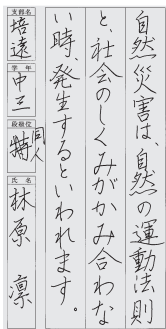 自然災害は、自然の運動法則
と、社会のしくみがかみ合わな
い時、発生するといわれます。
支部名 培遠
学年 中三
段級位 特 同人
氏名 林原 凛